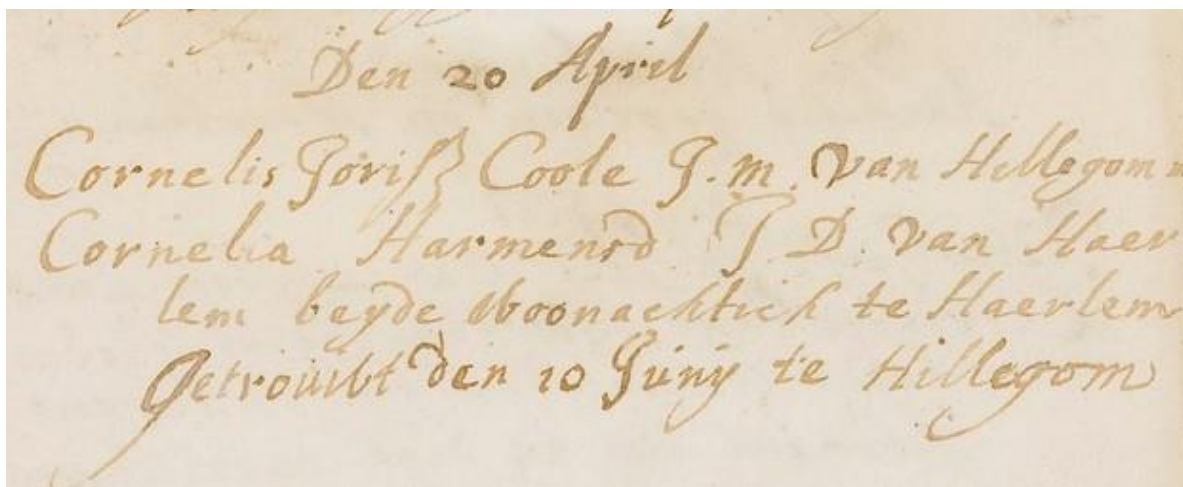 Den 20 April
Cornelis Joriss Coole J.m. van Hillegom
Cornelia Harmensd J D. van Haer
lem beyde Woonachtich te Haerlem
Getrouwbt den 10 Junÿ te Hillegom